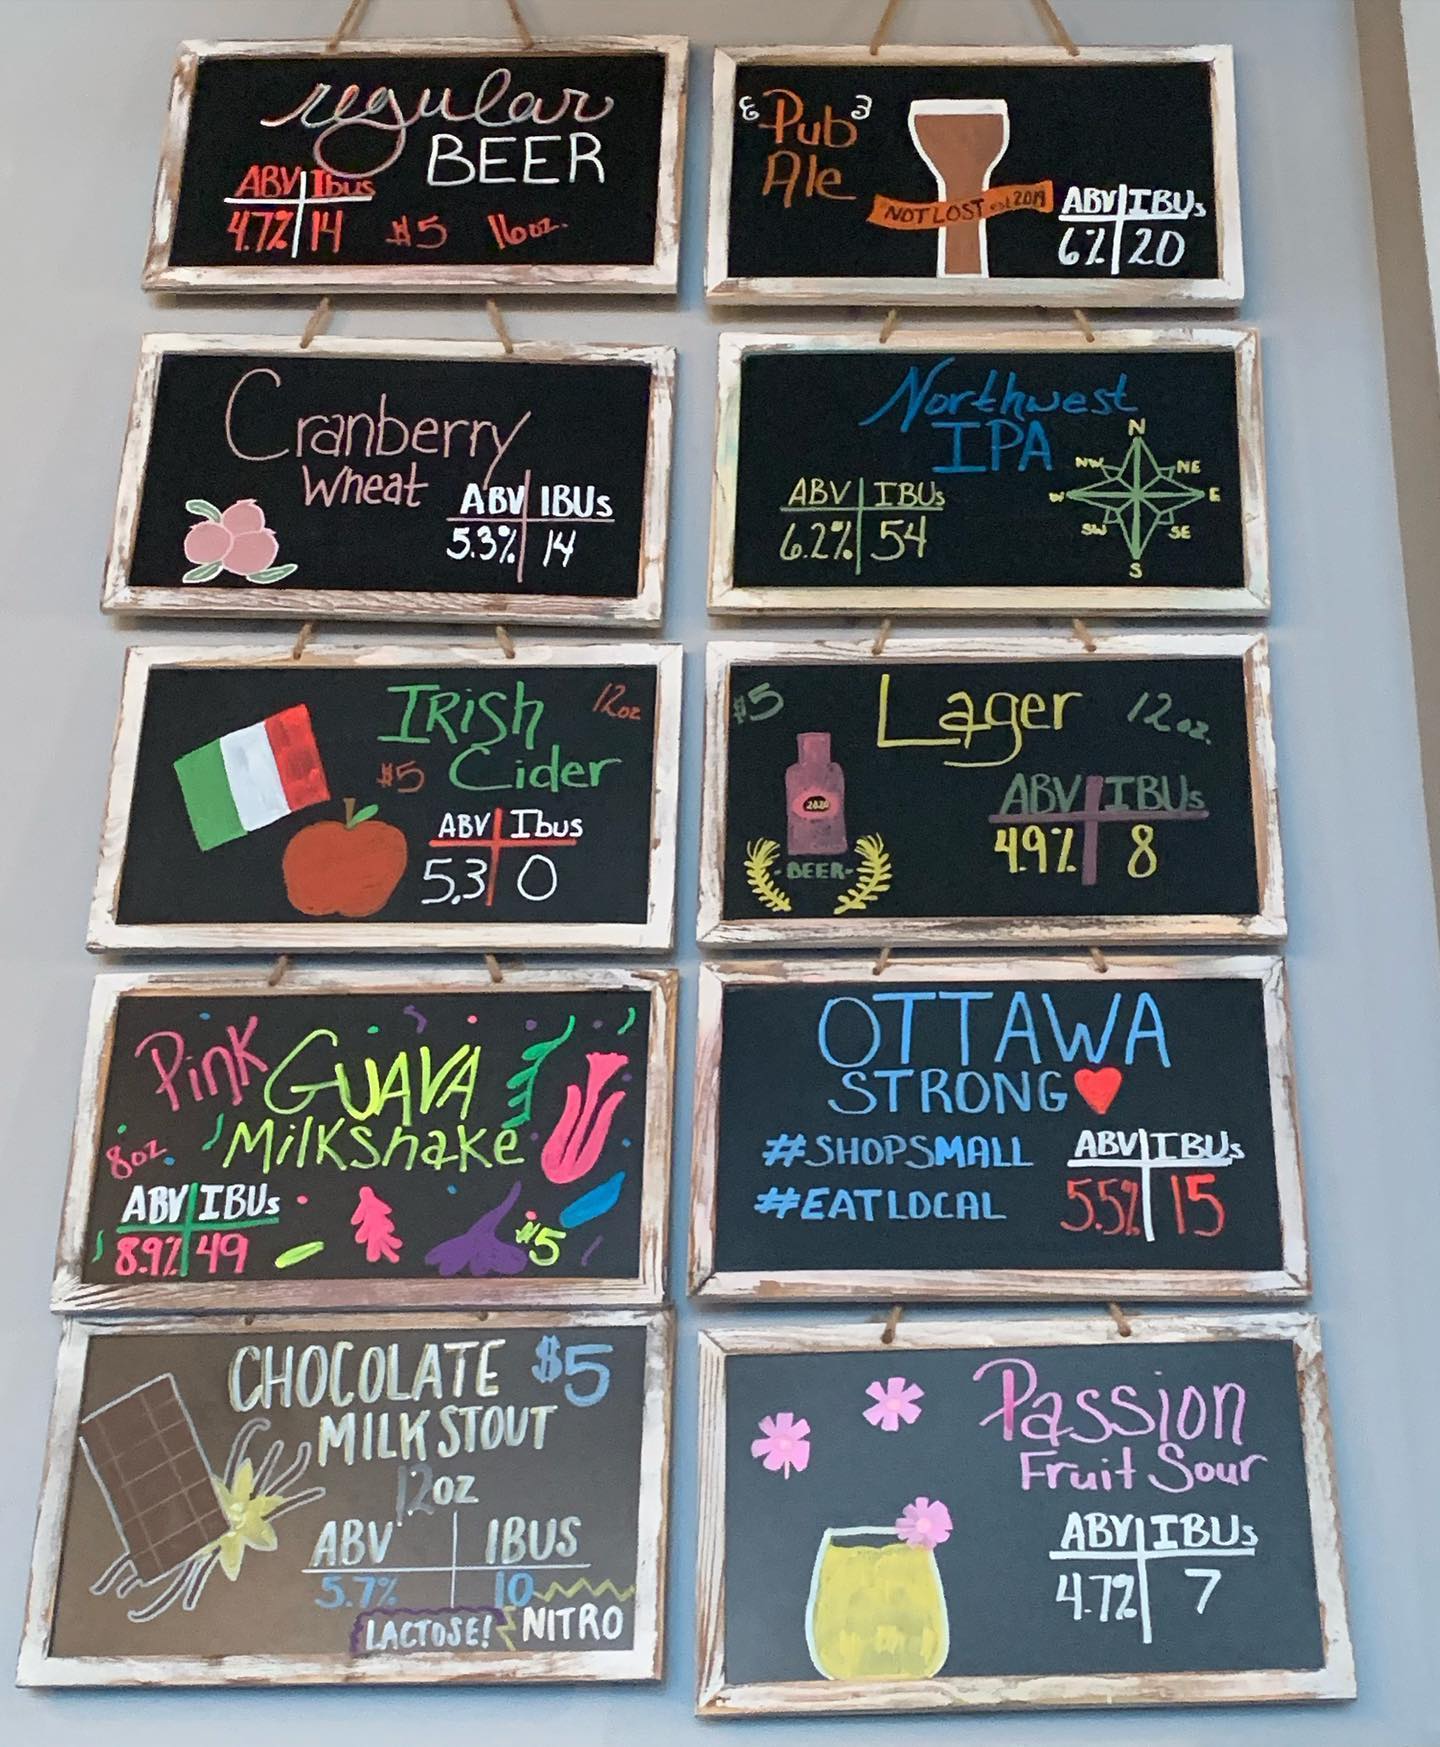 regular
BEER
ABV Ibus
4.7% 14 $5 16oz.
Pub
Ale
NOT LOST est 2019
ABV IBUs
6% 20
Cranberry
Wheat
ABV IBUs
5.3% 14
Northwest
IPA
ABV IBUs
6.2% 54
N
NW NE
W E
SW SE
S
IRish 12oz
$5 Cider
ABV Ibus
5.3 0
$5 Lager 12oz.
ABV IBUs
4.9% 8
2020
-BEER-
Pink GUAVA
Milkshake
8oz
ABV IBUs
8.9% 49
$5
OTTAWA
STRONG
#SHOPSMALL
#EATLOCAL
ABV IBUs
5.5% 15
CHOCOLATE $5
MILK STOUT
12oz
ABV IBUS
5.7% 10
LACTOSE! NITRO
Passion
Fruit Sour
ABV IBUs
4.7% 7